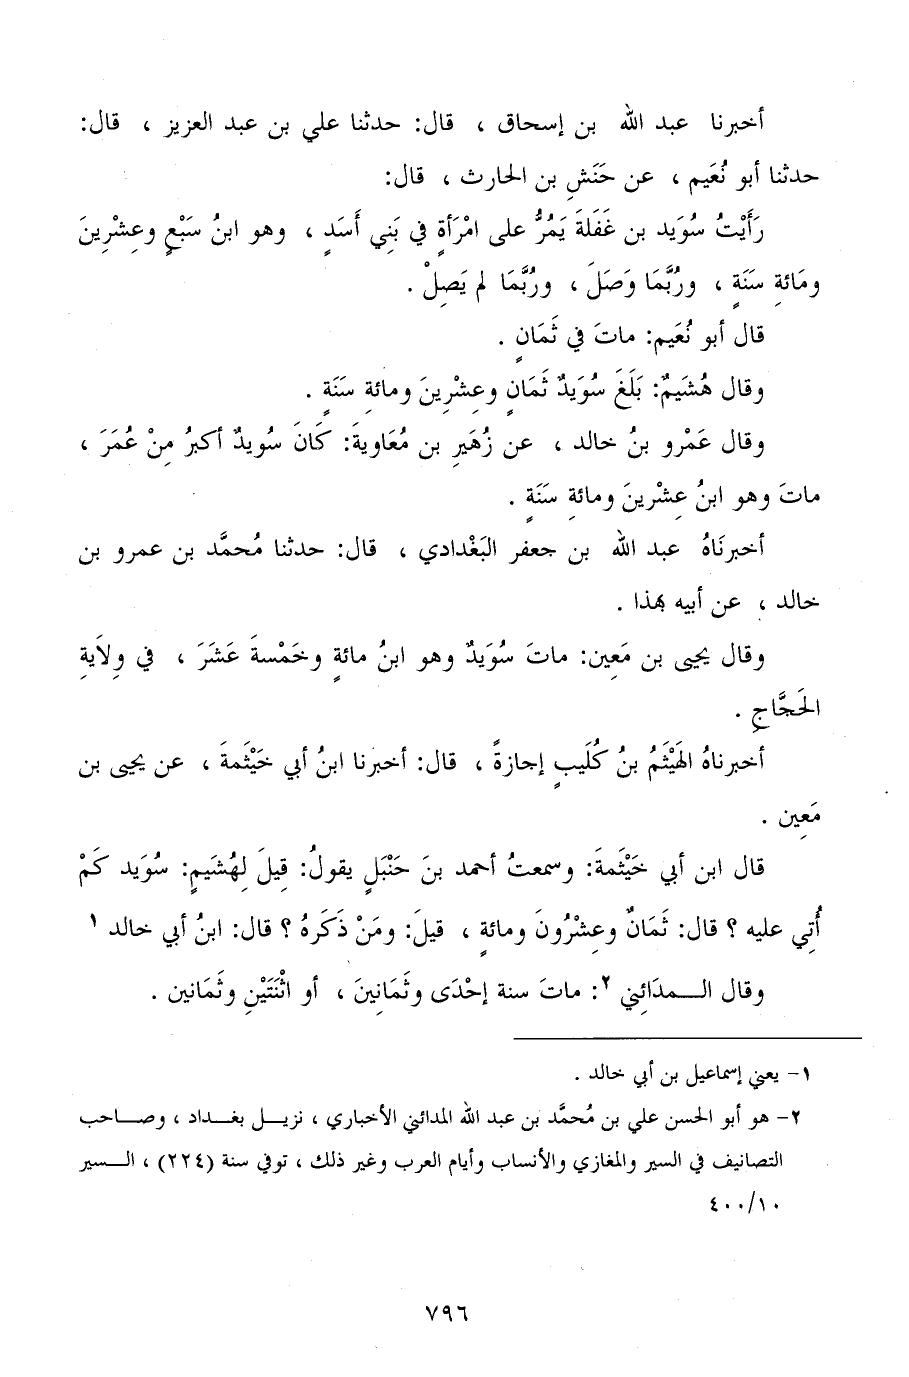 أخبرنا عبد الله بن إسحاق ، قال: حدثنا علي بن عبد العزيز ، قال:
حدثنا أبو نُعَيم ، عن حَنَشِ بن الحارث ، قال:
رَأَيْتُ سُوَيد بن غَفَلَةَ يَمُرُّ على امْرَأةٍ في بَنِي أَسَدٍ ، وهو ابنُ سَبْعٍ وعِشْرِينَ
ومَائةِ سَنَةٍ ، ورُبَّمَا وَصَلَ ، ورُبَّمَا لم يَصِلْ .
قال أبو نُعَيم: ماتَ في ثَمَانٍ .
وقال هُشَيمٌ: بَلَغَ سُوَيدٌ ثَمَانٍ وعِشْرِينَ ومائةِ سَنَةٍ .
وقال عَمْرو بنُ خالد ، عن زُهَيرِ بن مُعَاويةَ: كَانَ سُويدٌ أكبرُ مِنْ عُمَرَ ،
ماتَ وهو ابنُ عِشْرينَ ومائةِ سَنَةٍ .
أخبرنَاهُ عبد الله بن جعفر البَغْدادي ، قال: حدثنا مُحمَّد بن عمرو بن
خالد ، عن أبيه بهذا .
وقال يحيى بن مَعِين: ماتَ سُوَيدٌ وهو ابنُ مائةٍ وخَمْسةَ عَشَرَ ، في وِلاَيةِ
الحَجَّاجِ .
أخبرناهُ الهَيْثَمُ بنُ كُلَيبٍ إجازةً ، قال: أخبرنا ابنُ أبي خَيْثَمةَ ، عن يحيى بن
مَعِين .
قال ابن أبي خَيْثَمةَ: وسمعتُ أحمد بنَ حَنْبَلٍ يقولُ: قِيلَ لِهُشَيمٍ: سُوَيد كَمْ
أُتِي عليه ؟ قال: ثَمَانٌ وعِشْرُونَ ومائةٍ ، قيلَ: ومَنْ ذَكَرَهُ ؟ قال: ابنُ أبي خالد ١
وقال الـــمدَائِني ٢: ماتَ سنة إحْدَى وثَمَانِينَ ، أو اثْنَتَيْنِ وثَمَانين .
١- يعني إسماعيل بن أبي خالد .
٢- هو أبو الحسن علي بن مُحمَّد بن عبد الله المدائني الأخباري ، نزيـــل بغـــداد ، وصـــاحب
التصانيف في السير والمغازي والأنساب وأيام العرب وغير ذلك ، توفي سنة (٢٢٤) ، الـــسير
٤٠٠/١٠
٧٩٦